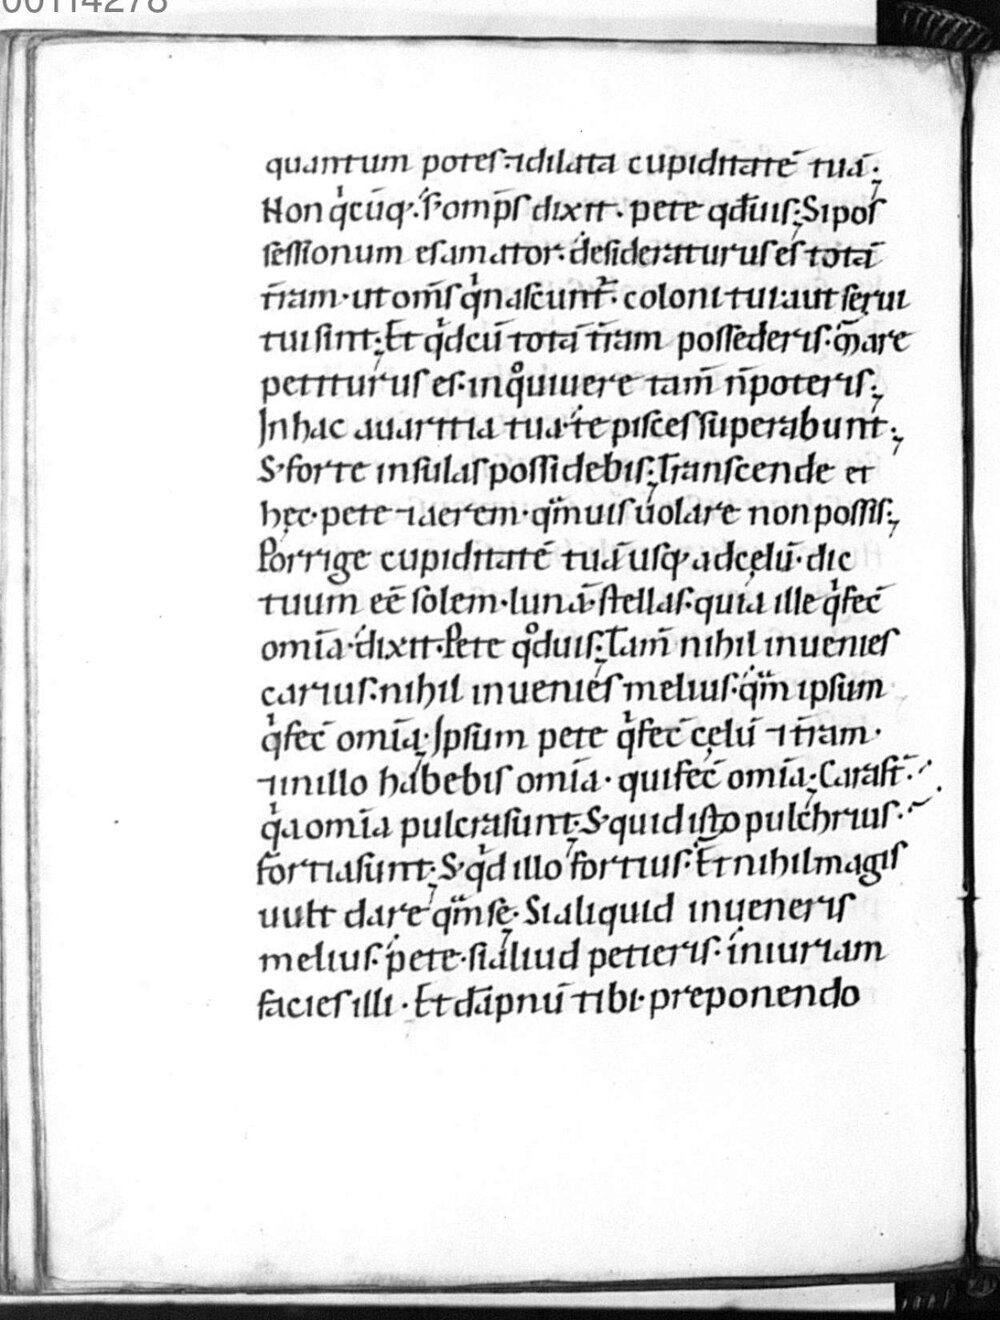 00114278
quantum potes·⁊dilata cupiditatē tuā·
Non q̍cūq·s; omp̄s dixit· pete qđuis; Sipos
sessionum es amator· desideraturus es totā
t̄ram· ut om̄s q̍ nascunt̄· coloni tui· aut serui
tui sint; Et q̍dcū totā t̄ram possederis· m̄are
petiturus es· inqͦ uiuere tam̄ n̄ poteris;
In hac auaritia tua· te pisces superabunt;
S; forte insulas possidebis; Transcende et
hęc· pete ⁊ aerem· qm̄uis uolare non possis;
Porrige cupiditatē tuā usq; ad cęlū· dic
tuum eē solem· lunā· stellas· quia ille q̍ fec̄
om̄ia· dixit· Pete qͦduis; Tam̄ nihil inuenies
carius· nihil inuenies melius· qm̄ ipsum
q̍ fec̄ om̄ia; Ipsum pete q̍ fec̄ cęlū ⁊ t̄ram·
⁊ in illo habebis om̄ia· qui fec̄ om̄ia; Cara st̄·
q̍a om̄ia pulcra sunt; S; quid isto pulchrius·
fortia sunt; S; q̍d illo fortius· Et nihil magis
uult dare qm̄ se; Si aliquid inueneris
melius· pete· si aliud petieris· iniuriam
facies illi· Et dāpnū tibi· preponendo